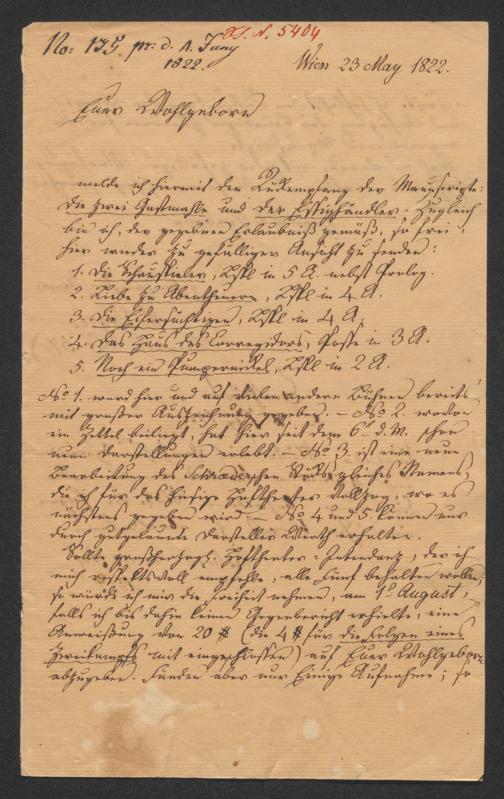 No: 135. pr: d. 1. Juny
1822.
XI. N. 5404
Wien 23 May 1822.
Euer Wohlgeborn
melde ich hiermit den Rückempfang der Manuscripte:
Die zwei Gastmahle und Der Essighändler. Zugleich
bin ich, der gegebnen Erlaubniß gemäß, so frei,
hier wieder zu gefälliger Ansicht zu senden:
1. Die Schauspieler, Lspl in 5 A. nebst Prolog.
2. Liebe zu Abentheuern, Lspl in 4 A.
3. Die Eifersüchtigen, Lspl in 4 A.
4. Das Haus des Corregidors, Posse in 3 A.
5. Noch ein Pumpernickel, Lspl in 2 A.
No 1. ward hier und auf vielen andern Bühnen bereits
mit großer Auszeichnung gegeben. – No 2. wovon
ein Zettel beiliegt, hat hier seit dem 6n d. M. schon
neun Darstellungen erlebt. – No 3. ist eine neue
Bearbeitung des Schröderschen Stücks gleiches Namens,
die ich für das hiesige Hoftheater vollzog, wo es
nächstens gegeben wird. – No 4 und 5 können nur
durch gutgelaunte Darsteller Werth erhalten.
Sollte großherzogl: Hoftheater-Intendanz, der ich
mich respektsvoll empfehle, alle fünf behalten wollen,
so würde ich mir die Freiheit nehmen, am 1n August,
falls ich bis dahin keinen Gegenbericht erhielte, eine
Anweißung von 20 # (die 4 # für die Folgen eines
Zweikampfs mit eingeschlossen) auf Euer Wohlgeborn
abzugeben. Fänden aber nur Einige Aufnahme, so